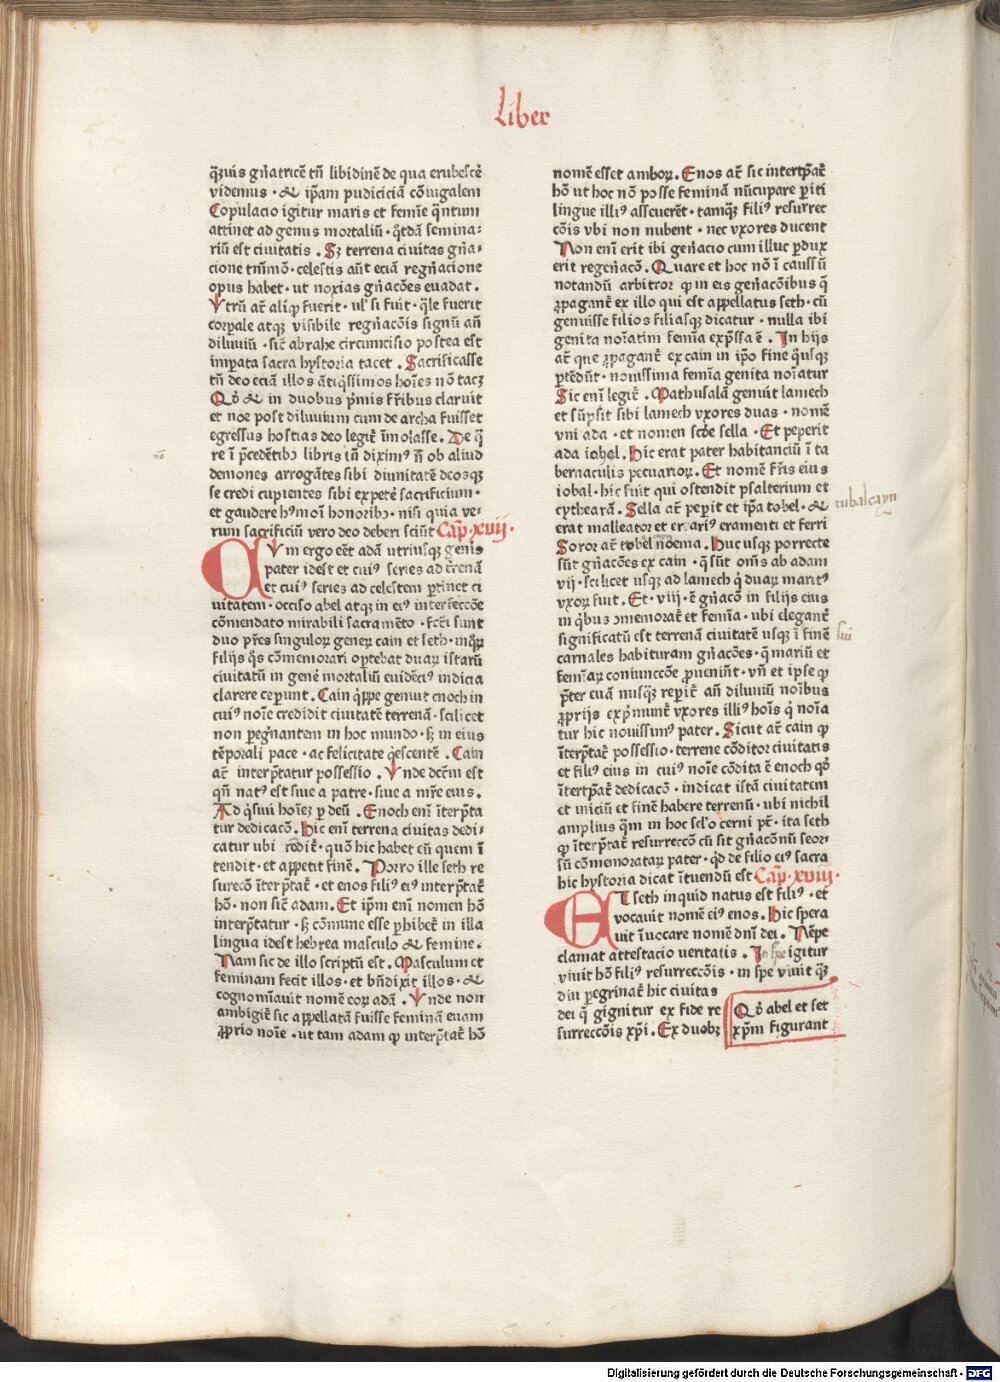 Liber
q̄ȝuis gn̄atricē tn̄ libidinē de qua erubescē
videmus · & ip̄am pudiciciā cōiugalem
Copulacio igitur maris et femīe q̄ntum
attinet ad genus mortaliū · q̄tdā semina⸗
riū est ciuitatis . Sȝ terrena ciuitas gn̄a⸗
cione tm̄mō · celestis aūt eciā regn̄acione
opus habet · ut noxias gn̄acōes euadat .
Vtrū at̄ aliqͥ fuerit · ul' si fuit · q̄le fuerit
corꝑale atqȝ visibile regn̄acōis signū an̄
diluuiū · sic̄ abrahe circumcisio postea est
imꝑata sacra hystoria tacet . Sacrificasse
tn̄ deo eciā illos ātiq̄ssimos hoīes nō tacȝ
Qō & in duobus pͥmis fr̄ibus claruit
et noe post diluuium cum de archa fuisset
egressus hostias deo legit̄ īmolasse . De q̄
re ī p̄cedētibꝫ libris in̄ diximꝰ n̄ ob aliud
demones arrogātes sibi diuinitatē deosqȝ
se credi cupientes sibi expetē sacrificium ·
et gaudere hꝰmoī honoribꝫ · nisi quia ve⸗
rum sacrificiū vero deo deberi sciūt Cap̄ · xvij ·
CVm ergo eēt adā utriusqȝ genīs
pater idest et cuiꝰ series ad t̄renā
et cuiꝰ series ad celestem ꝑtinet ci
uitatem · occiso abel atqȝ in eiꝰ interfecc̄oe
cōmendato mirabili sacramēto · fct̄i sunt
duo pr̄es singuloꝝ geneꝝ cain et seth · in qͥꝝ
filijs q̄s cōmemorari oꝑtebat duaꝝ istarū
ciuitatū in genē mortaliū euidēciꝰ indicia
clarere ceperunt . Cain q̄ppe genuit enoch in
cuiꝰ noīe credidit ciuitatē terrenā · scilicet
non ꝑegn̄antem in hoc mundo · sȝ in eius
tēporali pace · ac felicitate q̇escentē . Cain
at̄ interp̄tatur possessio . Vnde dc̄m est
qn̄ natꝰ est siue a patre · siue a mr̄e eius .
Ad q̇sui hoīeȝ ꝑ deū . Enoch enī īterp̄ta
tur dedicacō . Hic enī terrena ciuitas dedi⸗
catur ubi cōdit̄ · quō hic habet eū quem ī
tendit · et appetit finē . Porro ille seth re
surecō īterp̄tat̄ · et enos filiꝰ eiꝰ interp̄tat̄
hō · non sic̄ adam . Et ip̄m enī nomen hō
interp̄tatur · sȝ cōmune esse ꝑhibet̄ in illa
lingua idest hebrea masculo & femine .
Nam sic de illo scriptū est . Masculum et
feminam fecit illos · et bn̄dixit illos · &
cognomīauit nomē eoꝝ adā . Vnde non
ambigit̄ sic appellatā fuisse feminā euam
ꝓprio noīe · ut tam adam qͥ interp̄tat̄ hō
nomē esset amboꝝ . Enos at̄ sic intertp̄at̄
hō ut hoc nō posse feminā nūcupare ꝑiti
lingue illiꝰ asseuerēt · tamqȝ filiꝰ resurrec
cōis vbi non nubent · nec vxores ducent
Non enī erit ibi gen̄acio cum illuc ꝑdux
erit regen̄acō . Quare et hoc nō ī caussū
notandū arbitror qͥ in eis gen̄acōibus q̄
ꝓpagant̄ ex illo qui est appellatus seth · cū
genuisse filios filiasqȝ dicatur · nulla ibi
genita noīatim femīa exp̄ssa ē . In hijs
at̄ que ꝓpagant̄ ex cain in ip̄o fine q̄usqȝ
ꝓtēdūt · nouissima femīa genita noīatur
Sic enī legit̄ . Mathusalā genuit lamech
et sūpsit sibi lamech vxores duas · nomē
vni ada · et nomen scd̄e sella · Et peperit
ada iobel . Hic erat pater habitanciū ī ta
bernaculis pecuarioꝝ . Et nomē fr̄is eius
iobal · hic fuit qui ostendit psalterium et
cytharā . Sella at̄ peꝑit et ip̄a tobel · & tubalcayn
erat malleator et erariꝰ eramenti et ferri
Soror at̄ tobel noema . Huc usqȝ porrecte
sūt gn̄acōes ex cain · q̄ sūt om̄s ab adam
vij · scilicet usqȝ ad lamech q̇ duaꝝ maritꝰ
vxoꝝ fuit . Et · viij · ē gn̄acō in filijs eius
in q̇bus ↄmemorat̄ et femīa · ubi elegant̄
significatū est terrenā ciuitatē usqȝ ī finē sui
carnales habituram gn̄acōes · q̄ mariū et
femīaꝝ coniuncc̄oe ꝓueniūt · vn̄ et ipse qͥ
p̄ter euā nusqȝ reꝑit̄ an̄ diluuiū noībus
ꝓprijs exp̄munt̄ vxores illiꝰ hoīs q̇ noīa
tur hic nouissimꝰ pater . Sicut at̄ cain qͥ
īterp̄tat̄ possessio · terrene cōditor ciuitatis
et filiꝰ eius in cuiꝰ noīe cōdita ē enoch qͦ
ītertp̄at̄ dedicacō · indicat istā ciuitatem
et iniciū et finē habere terrenū · ubi nichil
amplius q̄m in hoc scl̄o cerni pt̄ · ita seth
qͥ īterp̄tat̄ resurreccō cū sit gn̄acōnū seor⸗
sū cōmemorataꝝ pater · qͥd de filio eiꝰ sacra
hic hystoria dicat ītuendū est Cap̄ · xviij ·
ET seth inquid natus est filiꝰ · et
vocauit nomē eiꝰ enos . Hic spera
uit īuocare nomē dn̄i dei . Nēpe
clamat attestacio veritatis . In spe igitur
viuit hō filiꝰ resurreccōis · in spe viuit qȝ
diu ꝑegrinat̄ hic ciuitas
dei q̄ gignitur ex fide re
surreccōis xp̄i . Ex duobȝ
Qō abel et set
xp̄m figurant